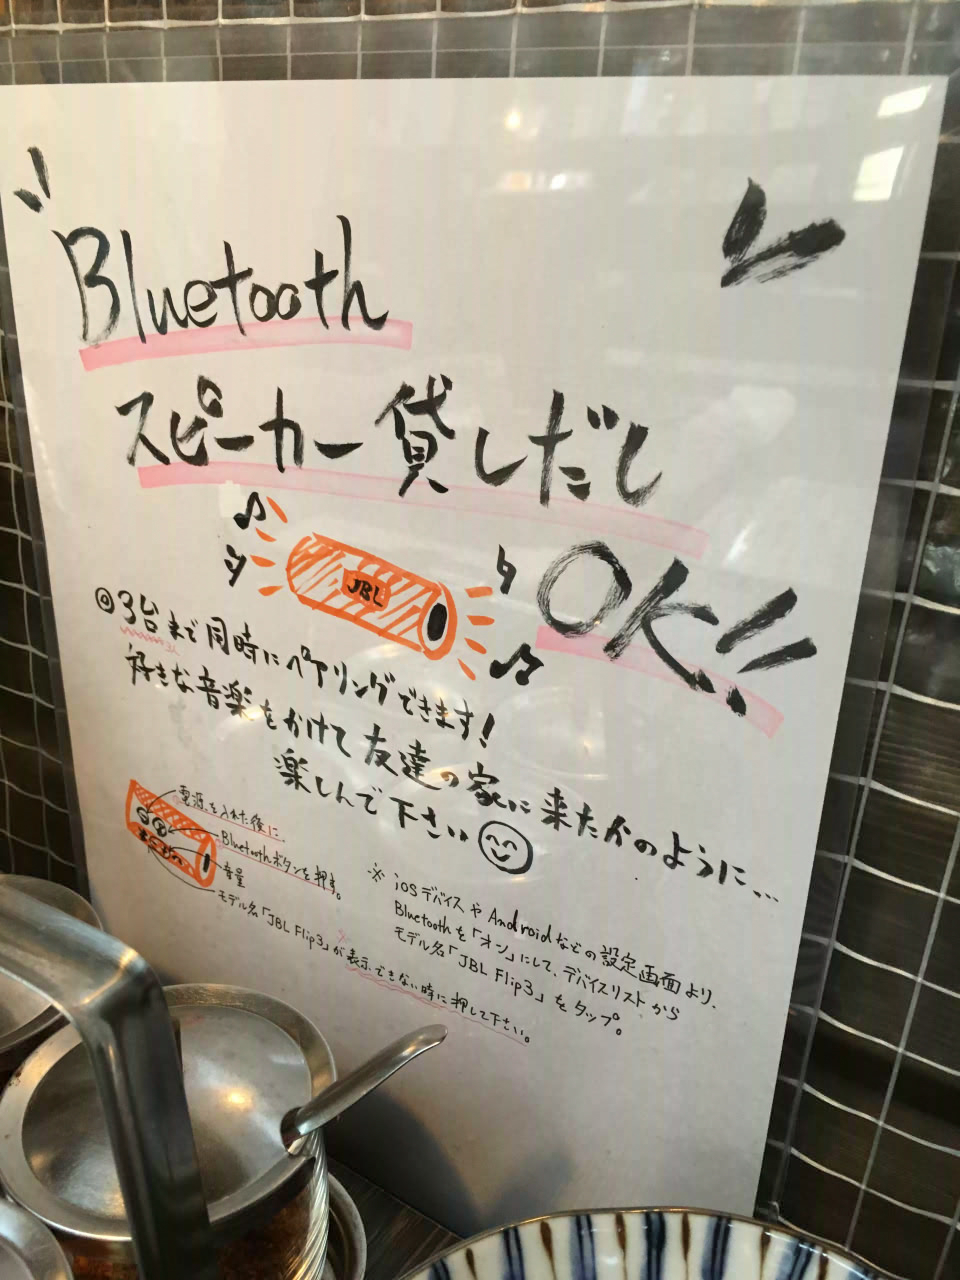 Bluetooth
スピーカー貸しだし
OK!!
JBL
◎3台まで同時にペアリングできます!
好きな音楽をかけて友達の家に来たかのように…
楽しんで下さい
電源を入れた後に、
Bluetoothボタンを押す。
音量
モデル名「JBL Flip3」が表示できない時に押して下さい。
※iosデバイスやAndroidなどの設定画面より、
Bluetoothを「オン」にして、デバイスリストから
モデル名「JBL Flip3」をタップ。